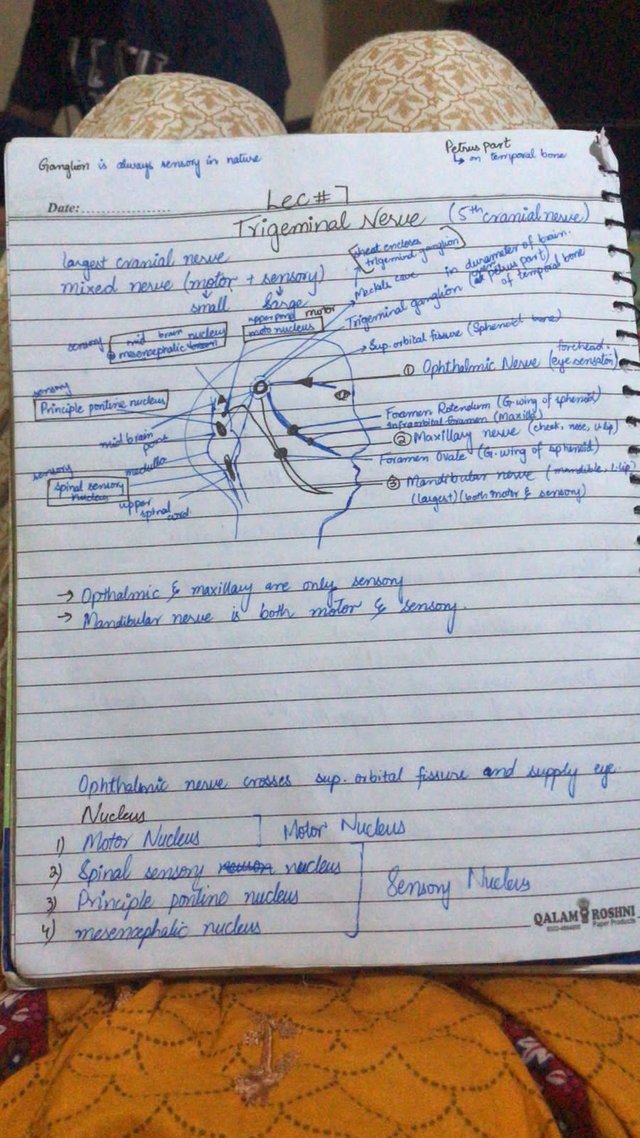 Petrus part
Ganglion is always sensory in nature
↳ on temporal bone
Date:
Lec # 7
Trigeminal Nerve (5th cranial nerve)
largest cranial nerve
mixed nerve (motor + sensory)
small large
sheat encloses
trigemind ganglion
Meckles cave in duramater of brain.
Trigeminal ganglion (at petrus part)
of temporal bone
Sup. orbital fissure (Sphenoid bone)
upper pond motor
moto nucleus
sensory
mid brain nucleus
mesencephalic
forehead.
① Ophthalmic Nerve (eye sensation
sensory
Principle pontine nucleus
Foramen Rotendum (G. wing of sphenoid)
Infraorbital foramen (Maxilla)
② Maxillary nerve (cheek, nose, u.lip)
Foramen Ovale (G. wing of sphenoid)
mid brain
pont
medulla
sensory
Spinal sensory
nucleus
upper
spinal
cord
③ Mandibular nerve (mandible, l.lip)
(largest) (both motor & sensory)
→ Opthalmic & maxillary are only sensory
→ Mandibular nerve is both motor & sensory.
Ophthalmic nerve crosses sup. orbital fissure and supply eye.
Nucleus
1) Motor Nucleus ] Motor Nucleus
2) Spinal sensory nucleus
3) Principle pontine nucleus
Sensory Nucleus
4) mesencephalic nucleus
QALAM ROSHNI
Paper Products